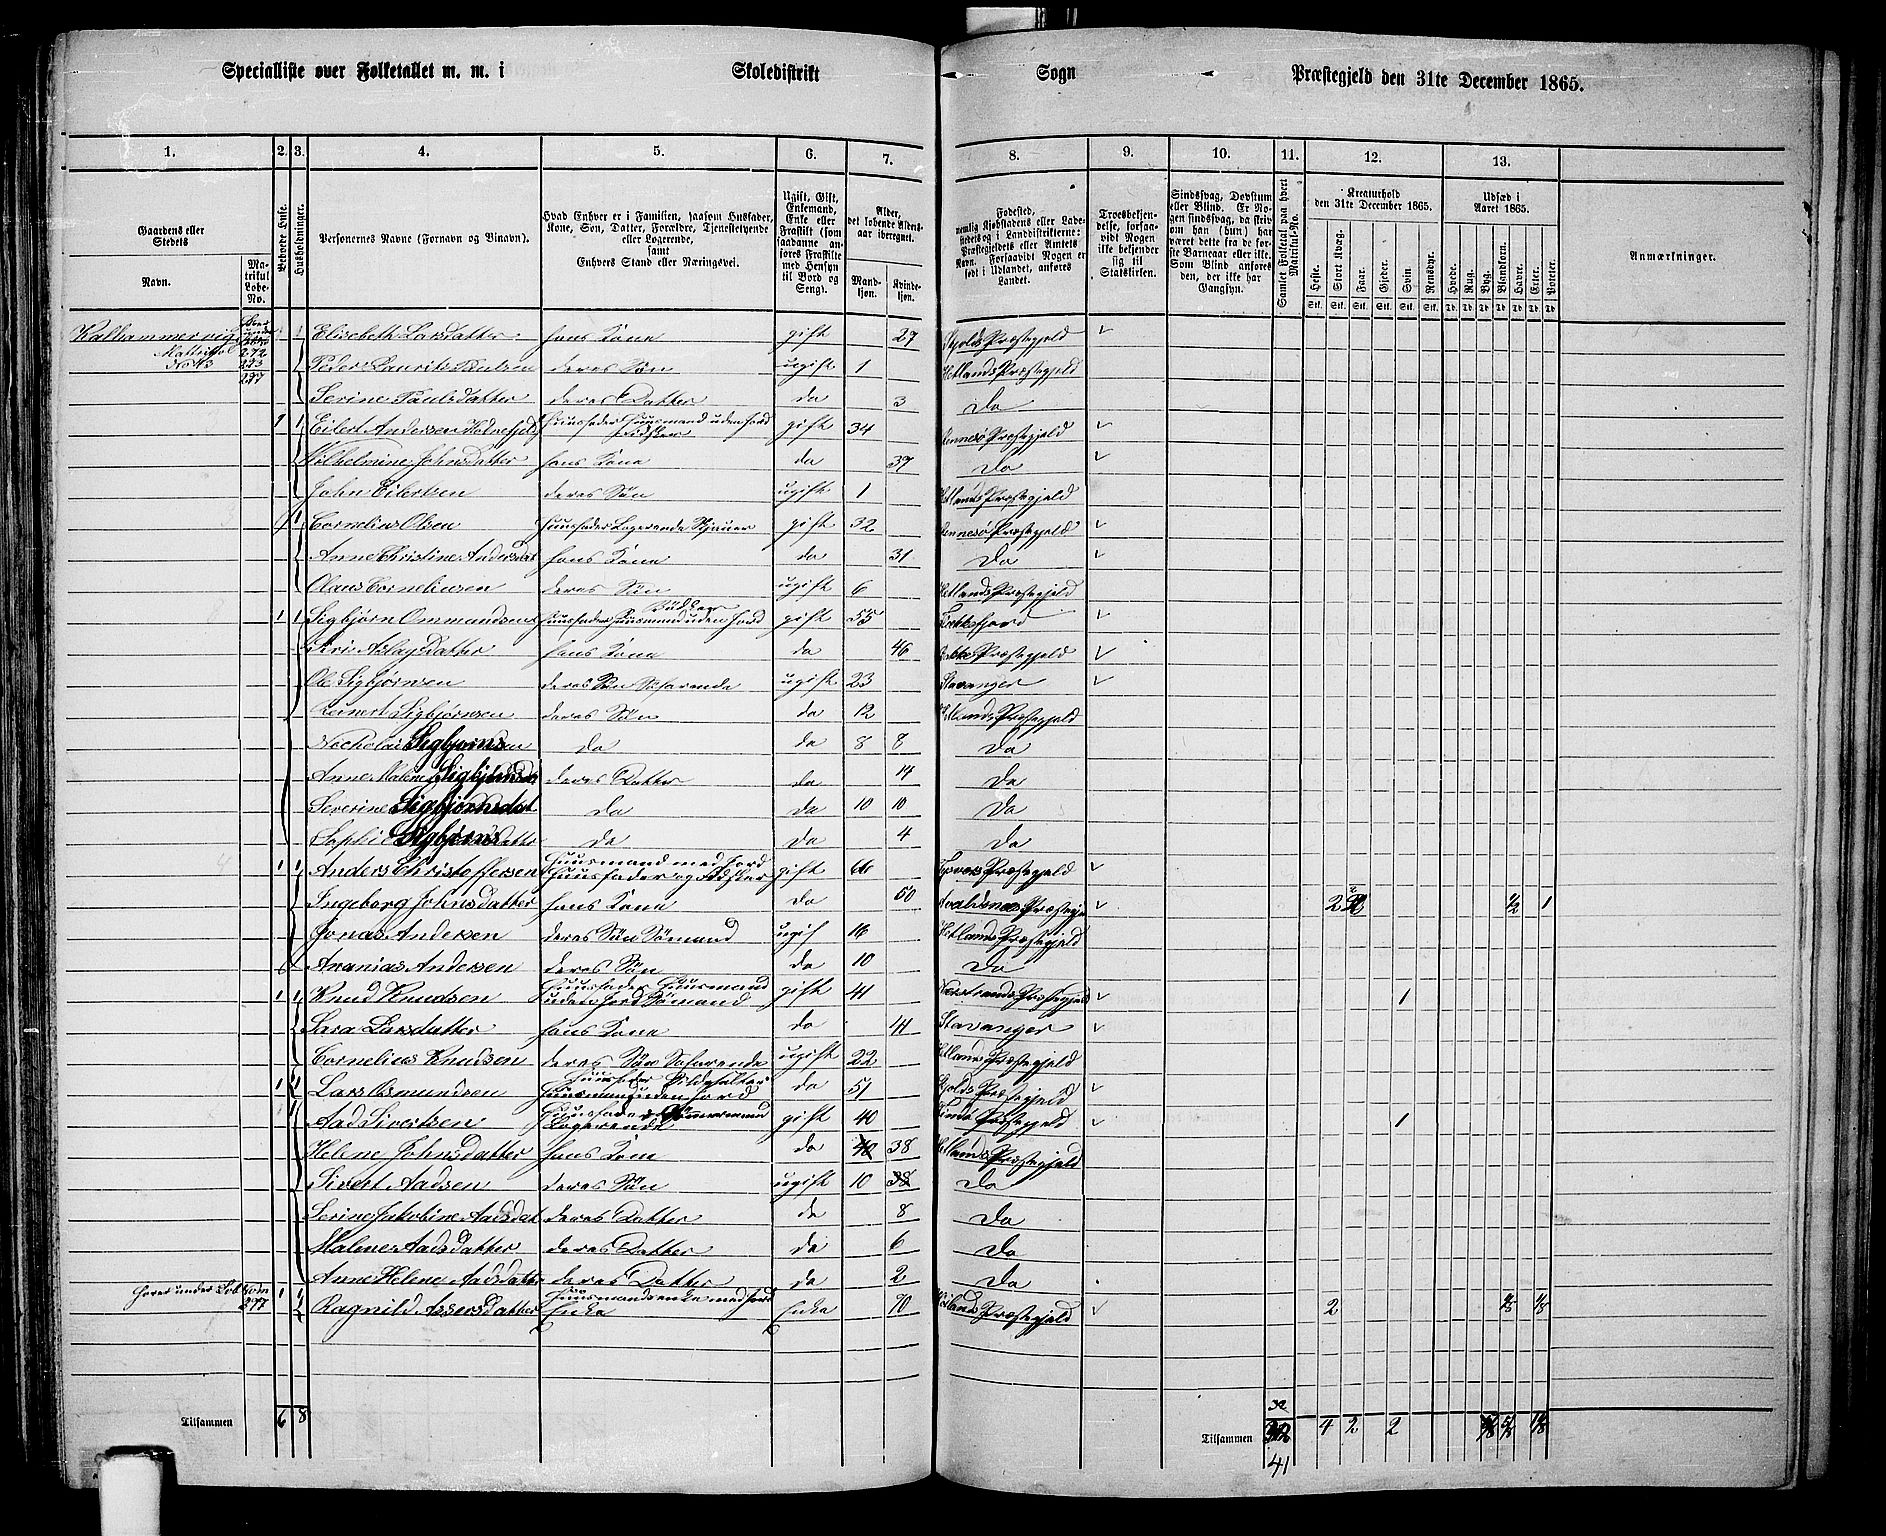 Specialliste over Folketallet m. m. i Skoledistrikt Sogn Præstegjeld den 31te December 1865.
1. 2. 3. 4. 5. 6. 7. 8. 9. 10. 11. 12. 13.
Gaardens eller Stedets
Navn.
Matrikul Løbe-No.
Beboede Huse.
Husholdninger.
Personernes Navne (Fornavn og Tilnavn).
Hvad Enhver er i Familien, saasom Husfader, Kone, Søn, Datter, Forældre, Tjenestetyende eller Logerende, samt Enhvers Stand eller Næringsvei.
Ugift, Gift, Enkemand, Enke eller Fraskilt (som saadanne anføres Fraskilte med Hensyn til Bord og Seng).
Alder, det løbende Aldersaar iberegnet.
Mandkjøn. Kvindekjøn.
Fødested,
Troesbekjendelse, forsaavidt Nogen ikke bekjender sig til Statskirken.
Sindssvag, Døvstum eller Blind.
Samlet Folketal paa hvert Matrikul-No.
Kreaturhold den 31te December 1865.
Heste. Stort Kvæg. Faar. Gjeder. Svin. Rensdyr.
Udsæd i Aaret 1865.
Hvede. Rug. Byg. Blandkorn. Havre. Erter. Poteter.
Anmærkninger.
Elisabeth Larsdatter hans Kone gift 27 Skjolds Præstegjeld
Peder Laurits Paulsen deres Søn ugift 1 Hetlands Præstegjeld
Serine Paulsdatter deres Datter do 3 Do
1 1 Eilert Andersen Huusfader Huusmand uden Jord Fidsker gift 34 Rennesø Præstegjeld
Wilhelmine Johnsdatter hans Kone do 37 Do
John Eilertsen deres Søn ugift 1 Hetlands Præstegjeld
1 Cornelius Olsen Huusfader Logerende gift 32 Rennesø Præstegjeld
Anne Christine Andersdat hans Kone do 31 Do
Olaus Corneliusen deres Søn ugift 6 Hetlands Præstegjeld
1 1 Sigbjørn Ommundsen Huusfader Huusmand uden Jord Bødker gift 55 Flekkefjord
Siri Aslagsdatter hans Kone do 46 Bakke Præstegjeld
Ole Sigbjørnsen deres Søn Søfarende ugift 23 Stavanger
Reinert Sigbjørnsen deres Søn do 12 Hetlands Præstegjeld
Nicholai Sigbjørnsen do do 8 8 Do
Anne Malene Sigbjørnsdt deres Datter do 14 Do
Severine Sigbjørnsdat do do 10 10 Do
Sophie Sigbjørnsdatter do do 4 Do
1 1 Anders Christoffersen Huusmand med Jord Huusfader og Fidsker gift 66 Præstegjeld
Ingeborg Johnsdatter hans Kone do 50 Avaldsnes Præstegje 2 1/2 1
Jonas Andersen deres Søn Sømand ugif 16 Hetlands Præstegjeld
Ananias Andersen deres Søn do 10 Do
1 1 Knud Knudsen Huusfader Huusmand uden Jord Sømand gift 41 Nerstrands Præstegjeld 1
Sara Larsdatter hans Kone do 44 Stavanger
Cornelius Knudsen deres Søn Søfarende ugift 22 Hetlands Præstegjeld
1 1 Lars Osmundsen Huusfader Sildesalter Huusmand uden Jord do 51 Skjolds Præstegjeld
1 Aad Sivertsen Huusfader Tømmermand Logerende gift 40 Præstegjeld 1
Helene Johnsdatter hans Kone do 40 38 Hetlands Præstegjeld
Sivert Aadsen deres Søn ugift 10 38 Do
Serine Jakobine Aadsdat deres Datter do 8 Do
Malene Aadsdatter deres Datter do 6 Do
Anne Helene Aadsdatter deres Datter do 2 Do
277 1 1 Ragnild Assersdatter Huusmandsenke med Jord Enke Enke 70 Præstegjeld 2 4/8 4/8
Tilsammen 6 8
Tilsammen 32 4 2 2
41